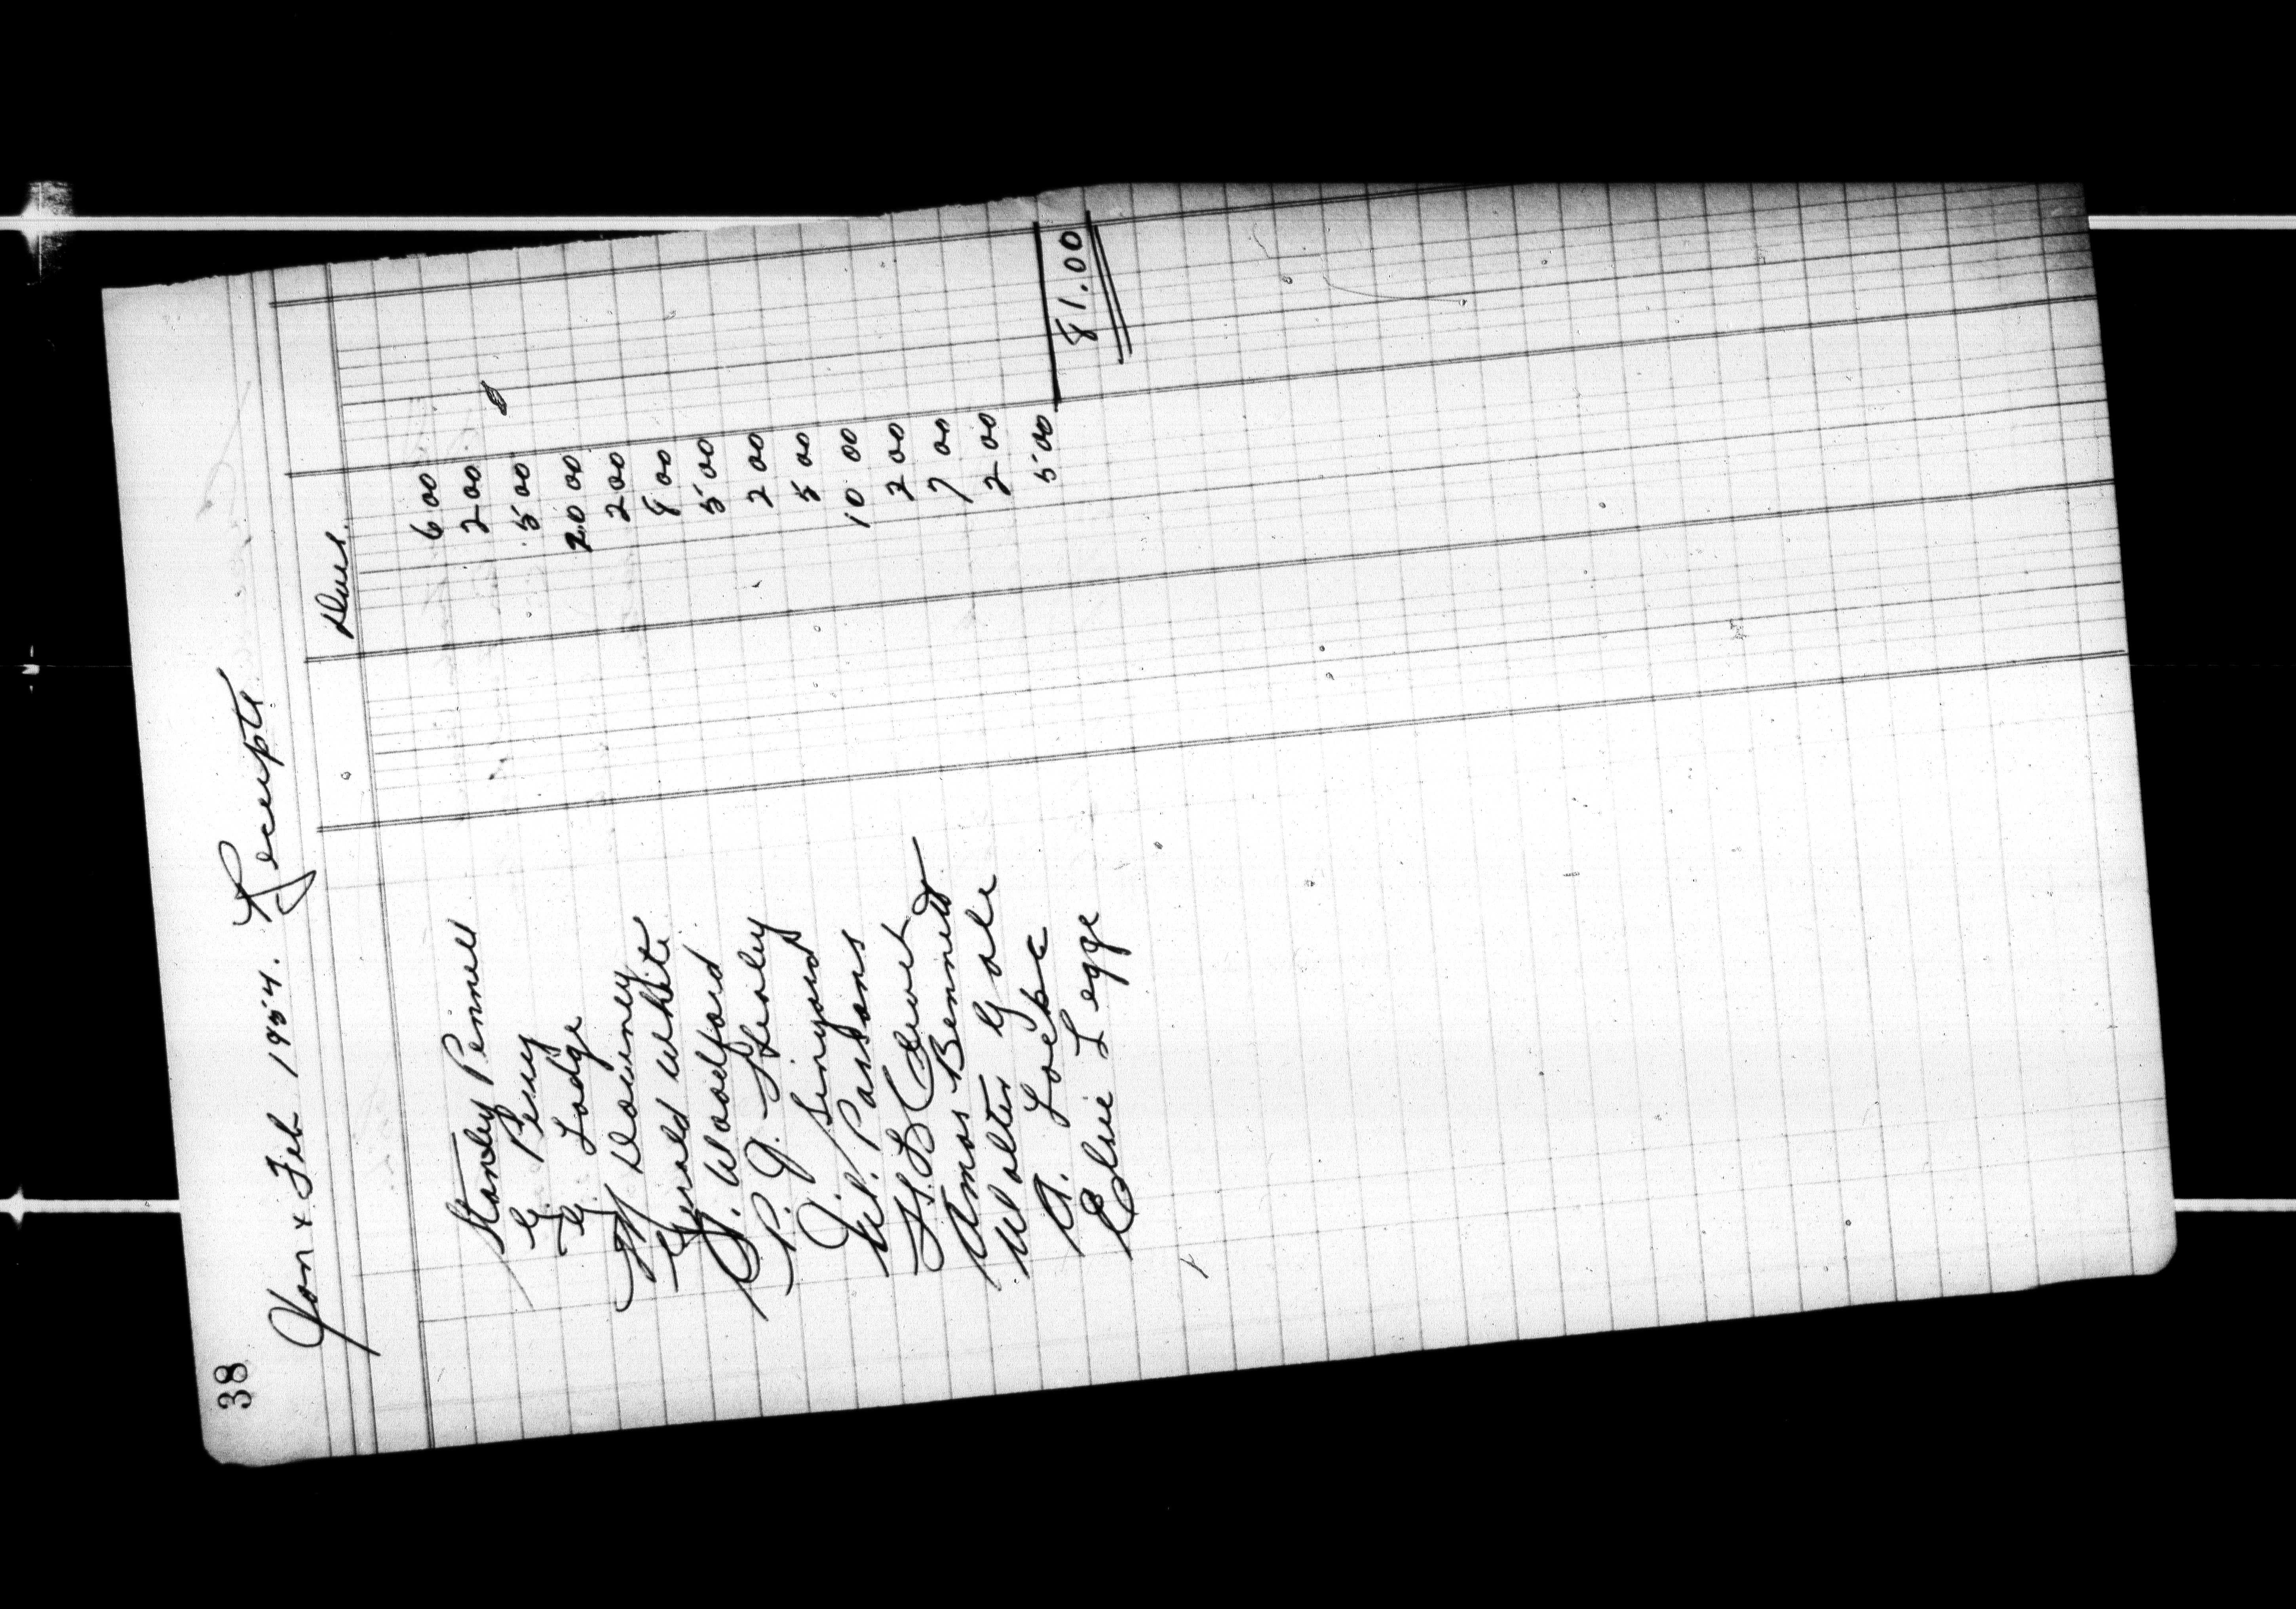 38
Jan & Feb 1954. Receipts
Dues.
Stanley Pennell 6 00
G. Perry 2 00
G. Lodge 5 00
Downey 20 00
Gerald White 2 00
J. Woodford 8 00
P. J. Healey 5 00
J. Sinyard 2 00
Wl. Parsons 5 00
10 00
Amos Bennett 2 00
Walter Gale 7 00
A. Locke 2 00
Elsie Legge 5 00
81.00